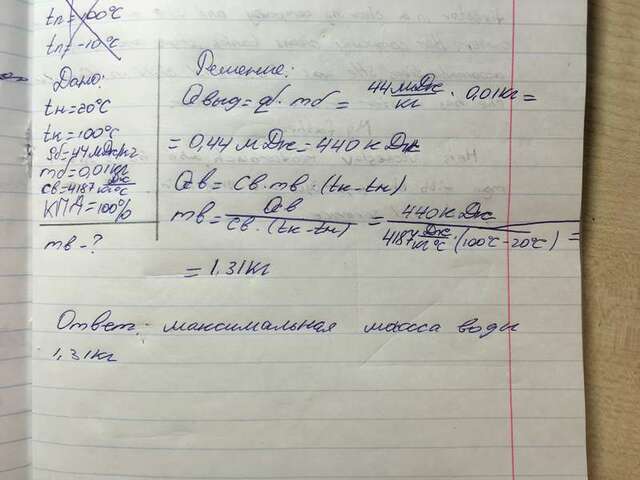 tн=100°C
tп=-10°C
Дано:
tн=20°C
tк=100°C
qб=44 МДж/кг
mб=0,01кг
cв=4187 Дж/кг°C
КПД=100%
mв-?
Решение:
Qвыд=q·mб = 44 МДж/кг · 0,01кг =
= 0,44 МДж = 440 кДж
Qв = cв·mв·(tк-tн)
mв = Qв/cв·(tк-tн) = 440 кДж/4187 Дж/кг°C·(100°C-20°C) =
= 1,31кг
Ответ: максимальная масса воды
1,31кг